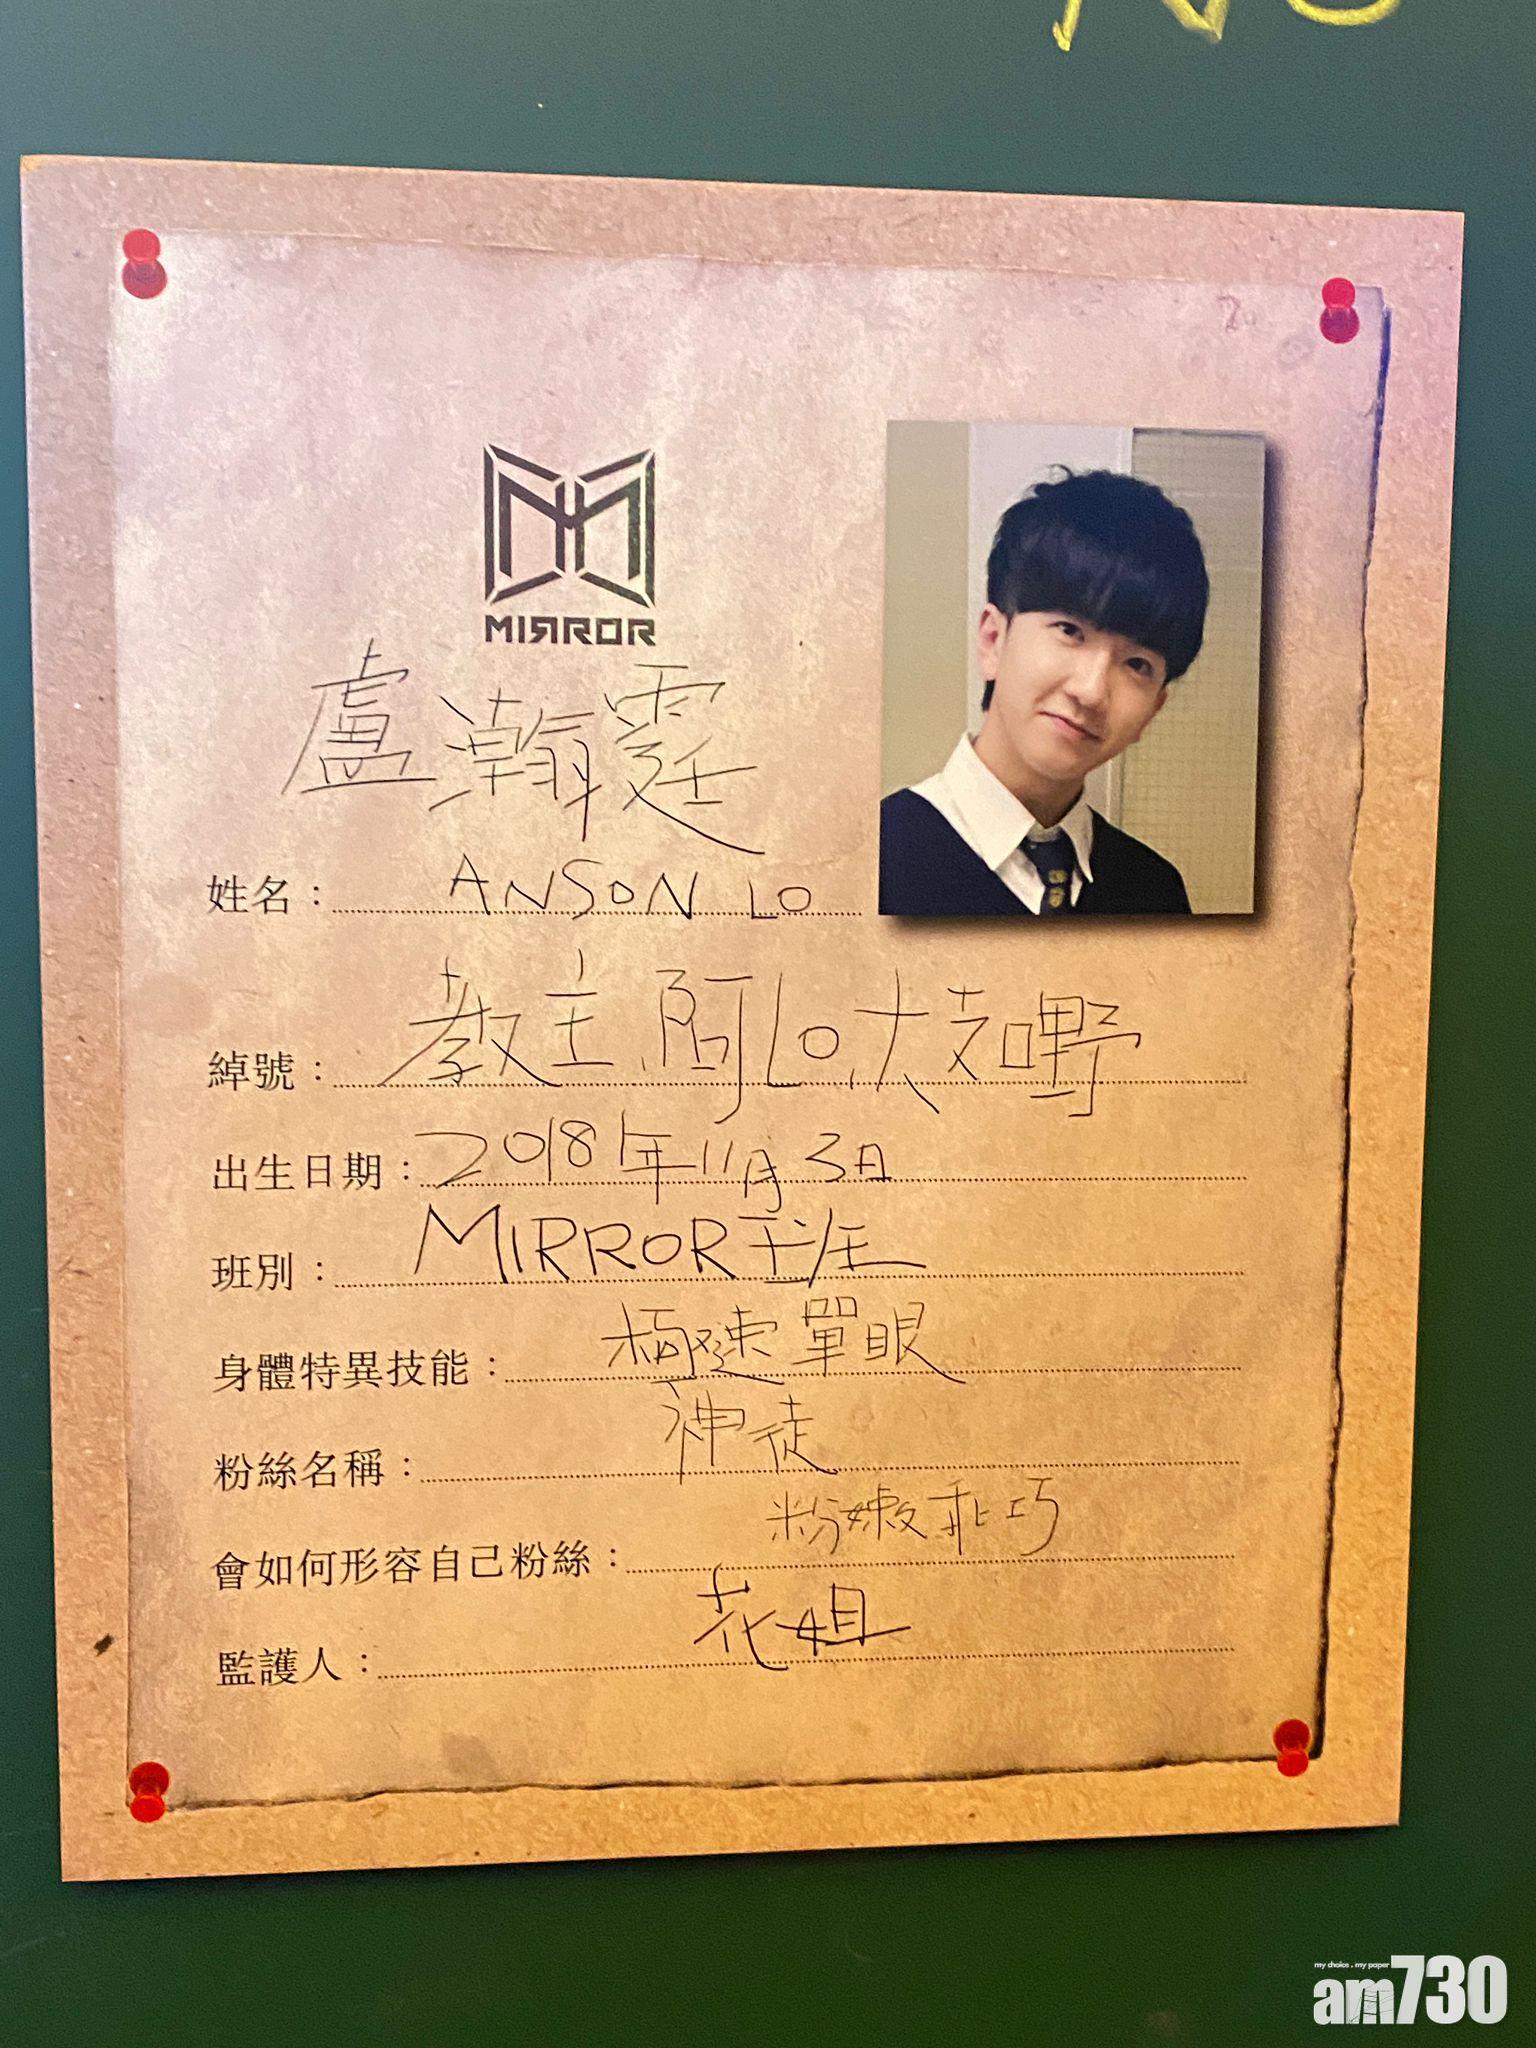 MIRROR
盧瀚霆
姓名：ANSON LO
綽號：教主、阿Lo、大支嘢
出生日期：2018年11月3日
班別：MIRROR班
身體特異技能：極速單眼
粉絲名稱：神徒
會如何形容自己粉絲：粉嫩乖巧
監護人：花姐
my choice . my paper
am730